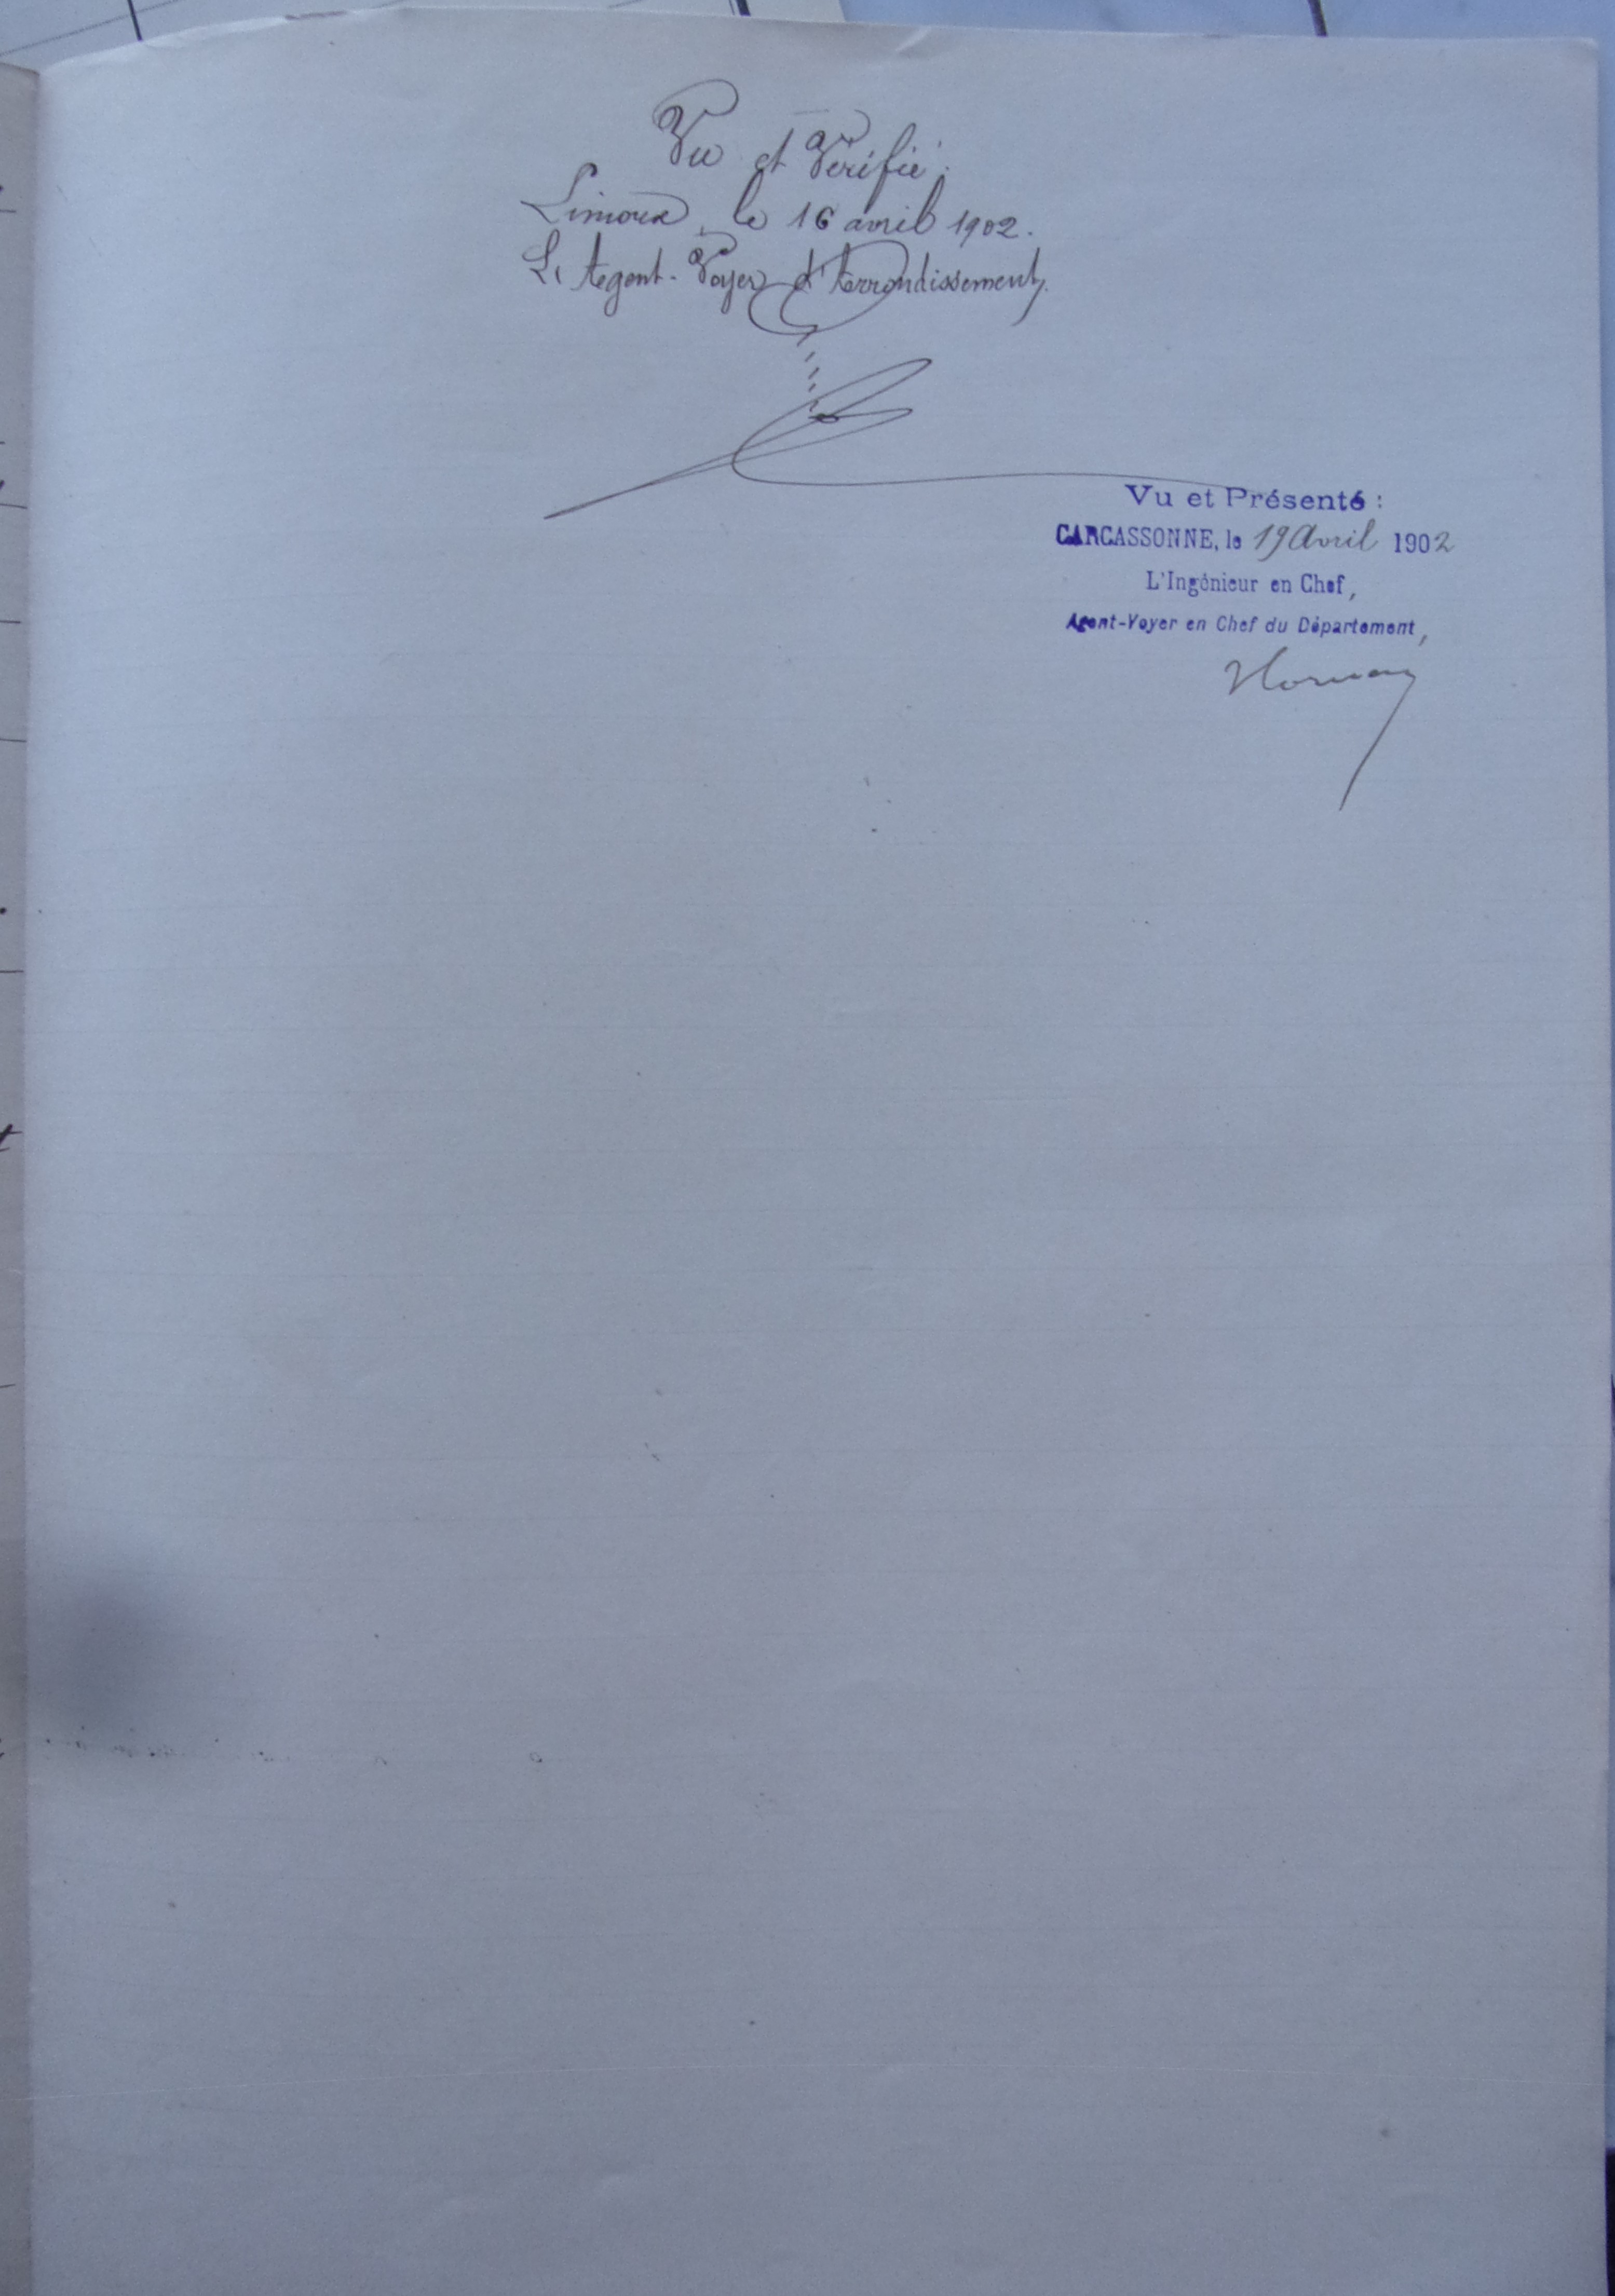 Vu et Vérifié :
Limoux, le 16 avril 1902.
L'Agent-Voyer d'Arrondissement.
Vu et Présenté :
CARCASSONNE, le 19 Avril 1902
L'Ingénieur en Chef,
Agent-Voyer en Chef du Département,